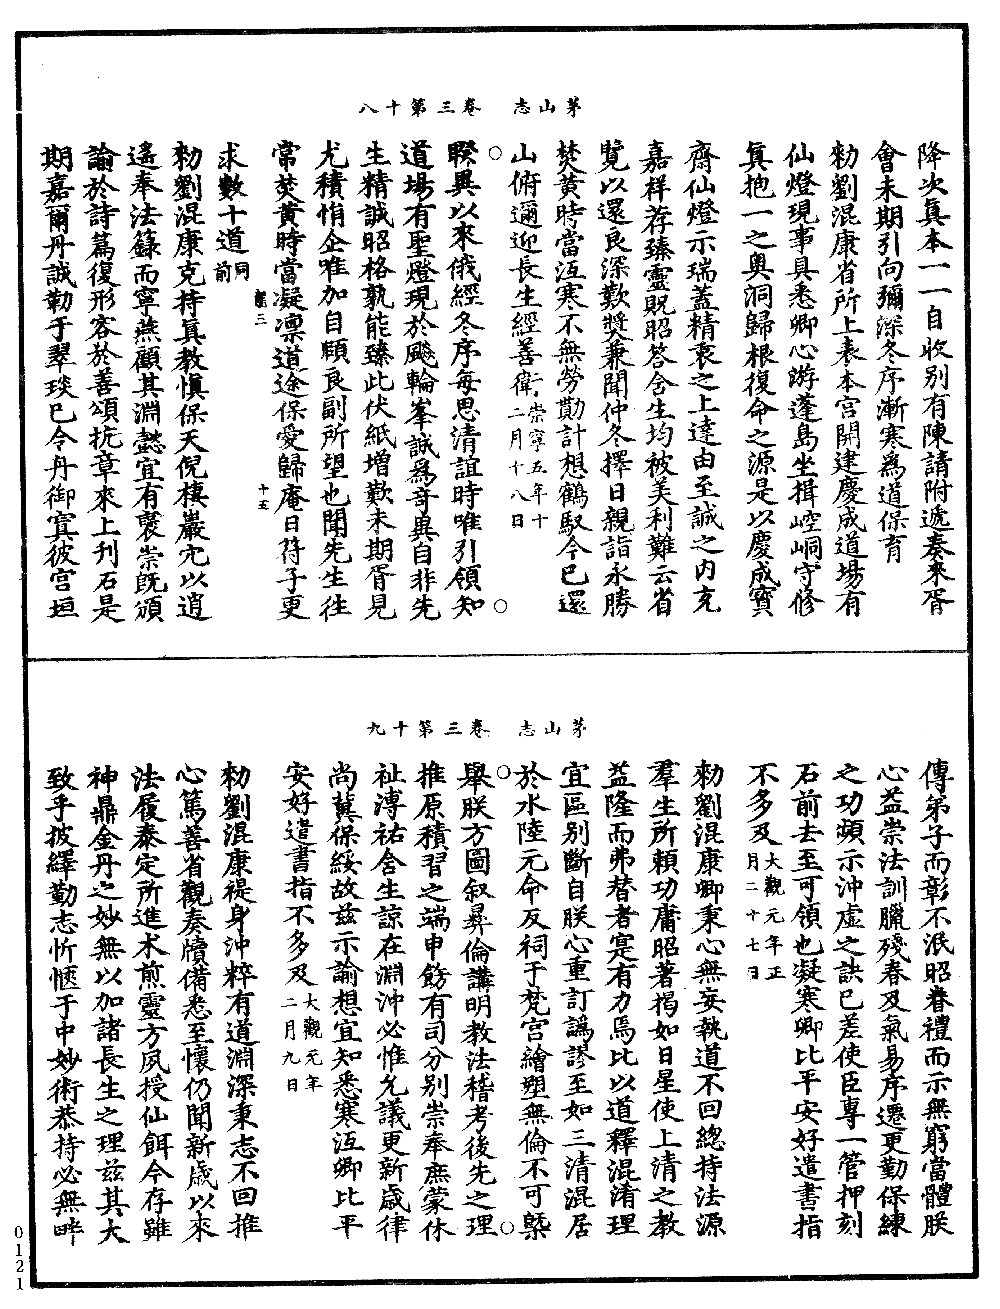 茅山志　卷三第十八
降次眞本一一自收別有陳請附遞奏來胥
會未期引向彌深冬序漸寒爲道保育
勑劉混康省所上表本宮開建慶成道場有
仙燈現事具悉卿心游蓬島坐揖崆峒守修
眞抱一之奧洞歸根復命之源是以慶成寶
齋仙燈示瑞蓋精衷之上達由至誠之內充
嘉祥荐臻靈貺昭答含生均被美利難云省
覽以還良深歎獎兼聞仲冬擇日親詣永勝
焚黃時當沍寒不無勞勩計想鶴馭今已還
山俯邇迎長生經善衛崇寧五年十二月十八日
睽異以來俄經冬序每思清誼時唯引領知
道場有聖燈現於颷輪峯誠爲奇異自非先
生精誠昭格孰能臻此伏紙增歎未期胥見
尤積悁企唯加自頥良副所望也聞先生往
常焚黃時當凝凛道途保愛歸庵日符子更
十五
求數十道同前
勑劉混康克持眞教愼保天倪棲巖宂以逍
遙奉法籙而寧燕顧其淵懿宜有襃崇旣頒
諭於詩篇復形容於善頌抗章來上刋石是
期嘉爾丹誠勒于翠琰已令丹御寘彼宮垣
茅山志　卷三第十九
傳弟子而彰不泯昭眷禮而示無窮當體朕
心益崇法訓臘殘春及氣易序遷更勤保練
之功頻示沖虛之訣已差使臣專一管押刻
石前去至可領也凝寒卿比平安好遣書指
不多及大觀元年正月二十七日
勑劉混康卿秉心無妄執道不回總持法源
羣生所賴功庸昭著揭如日星使上清之教
益隆而弗替者寔有力焉比以道釋混淆理
宜區別斷自朕心重訂譌謬至如三清混居
於水陸元命反祠于梵宮繪塑無倫不可槩
舉朕方圖叙彞倫講明教法稽考後先之理
推原積習之端申飭有司分別崇奉庶蒙休
祉溥祐含生諒在淵沖必惟允議更新歲律
尚冀保綏故兹示諭想宜知悉寒沍卿比平
安好遣書指不多及大觀元年二月九日
勑劉混康禔身沖粹有道淵深秉志不回推
心篤善省觀奏牘備悉至懷仍聞新歲以來
法履泰定所進术煎靈方夙授仙餌今存雖
神鼎金丹之妙無以加諸長生之理兹其大
致乎披繹勤志忻愜于中妙術恭持必無畔
0121